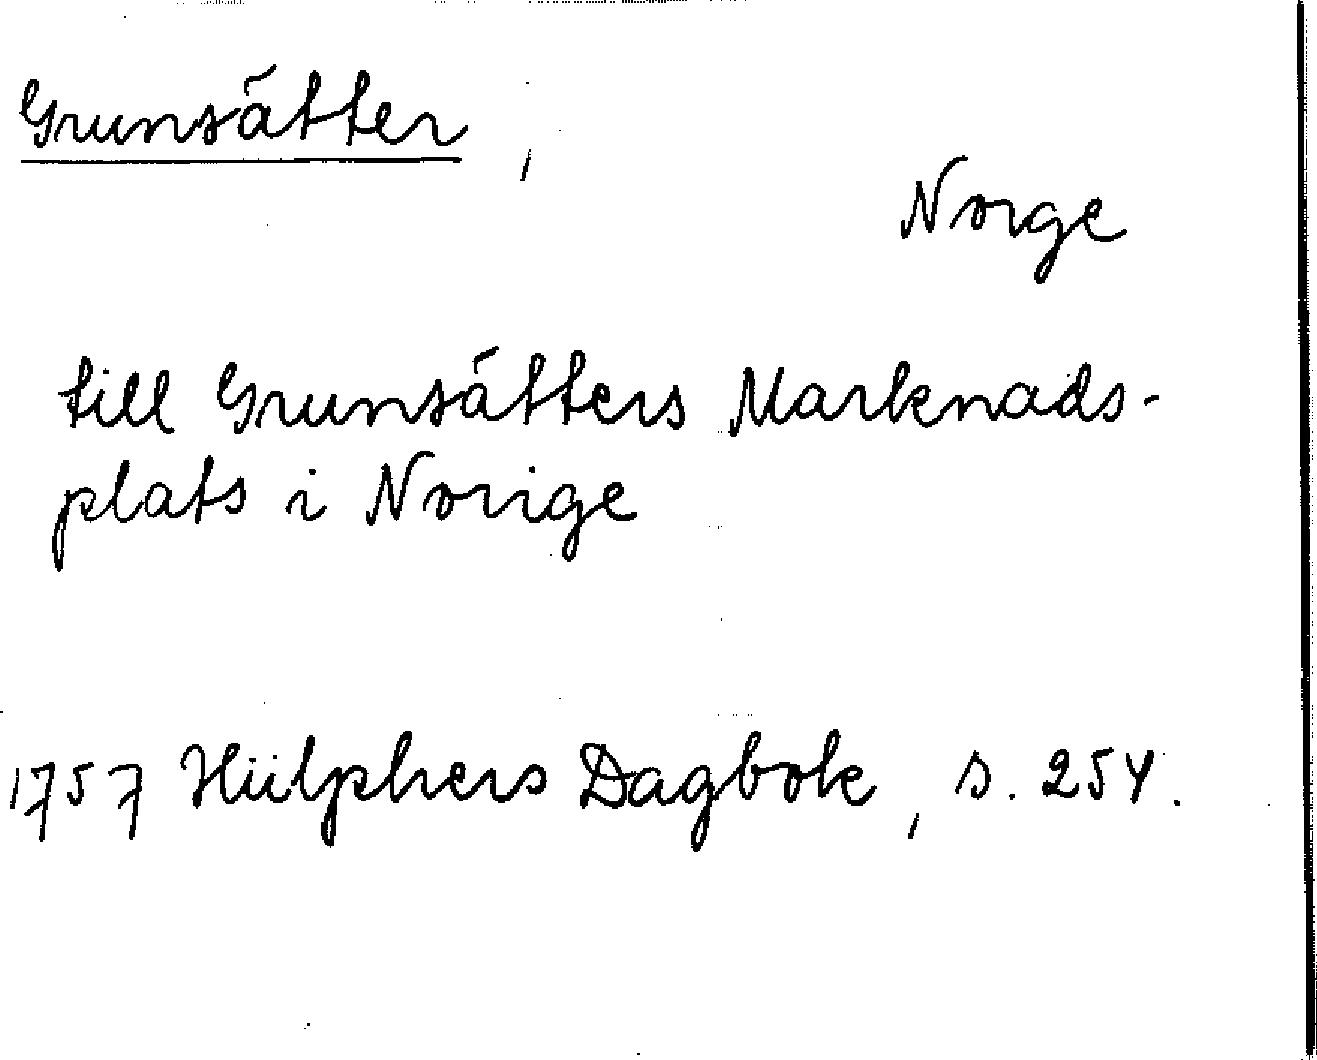 Grunsätter,
Norge
till Grunsätters Marknads-
plats i Norige
1757 Hülphers Dagbok, s. 254.